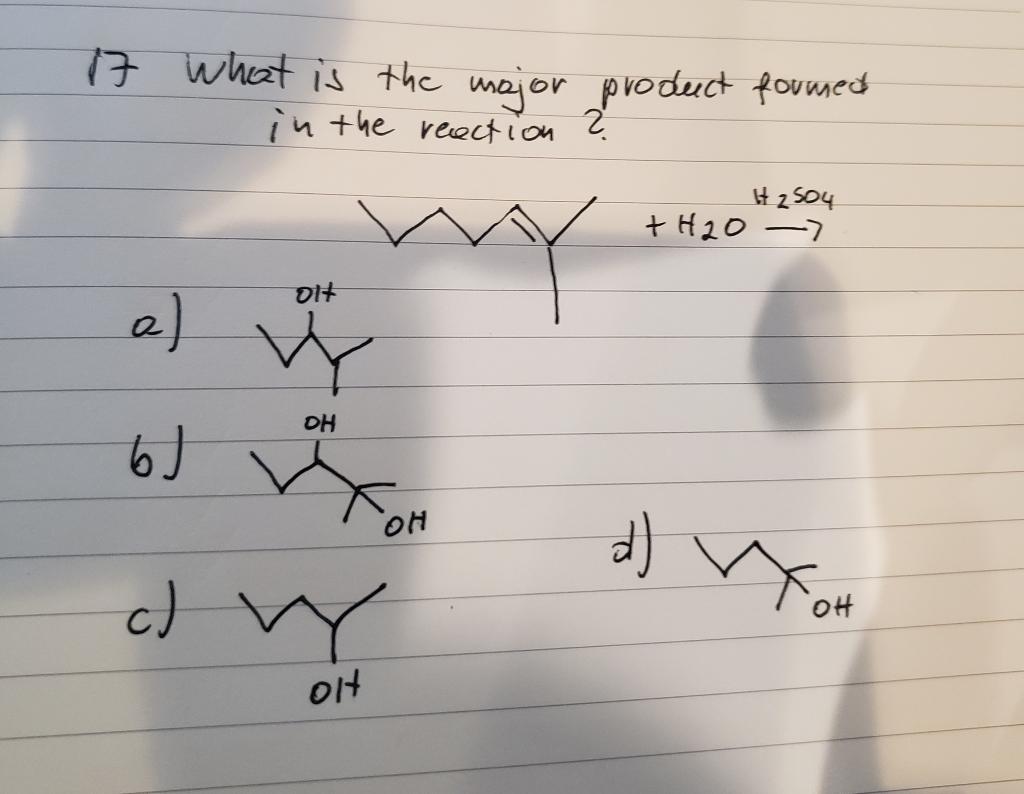 17 What is the major product formed
in the reaction ?
+ H2O H2SO4 →
a) OH
b) OH
OH
c)
OH
d) OH